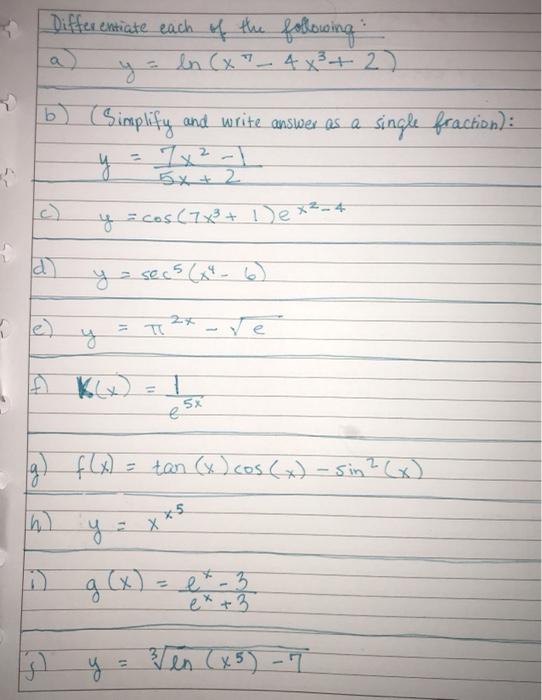 Differentiate each of the following:
a) y = ln(x⁷ - 4x³ + 2)
b) (Simplify and write answer as a single fraction):
y = 7x² - 1
5x + 2
c) y = cos(7x³ + 1)e^x²-4
d) y = sec⁵(x⁴ - 6)
e) y = π^2x - √e
f) K(x) = 1
e^5x
g) f(x) = tan(x)cos(x) - sin²(x)
h) y = x^x^5
i) g(x) = e^x - 3
e^x + 3
j) y = ∛ln(x⁵) - 7